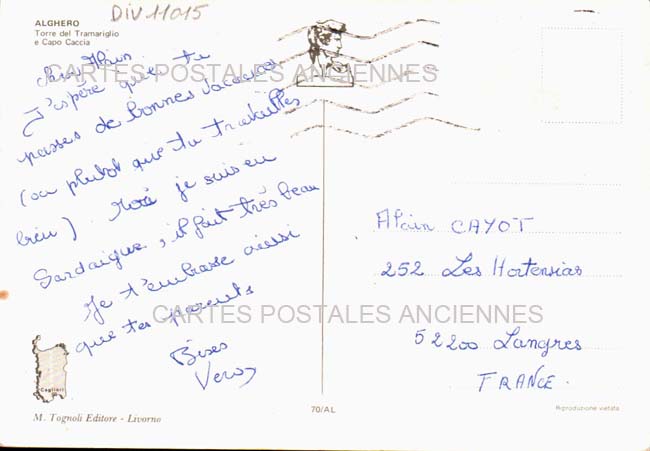 DIV 11015
ALGHERO
Torre del Tramariglio
e Capo Caccia
Alain
J'espère que tu
passes de bonnes vacances
(ou plutot que tu travailles
bien) je suis en
Sardaigne, il fait très beau
Je t'embrasse ainsi
que tes parents
Bises
Vero
CARTES POSTALES ANCIENNES
Alain CAYOT
252 Les Hortensias
52200 Langres
FRANCE.
CARTES POSTALES ANCIENNES
Cagliari
M. Tognoli Editore - Livorno
70/AL
Riproduzione vietata